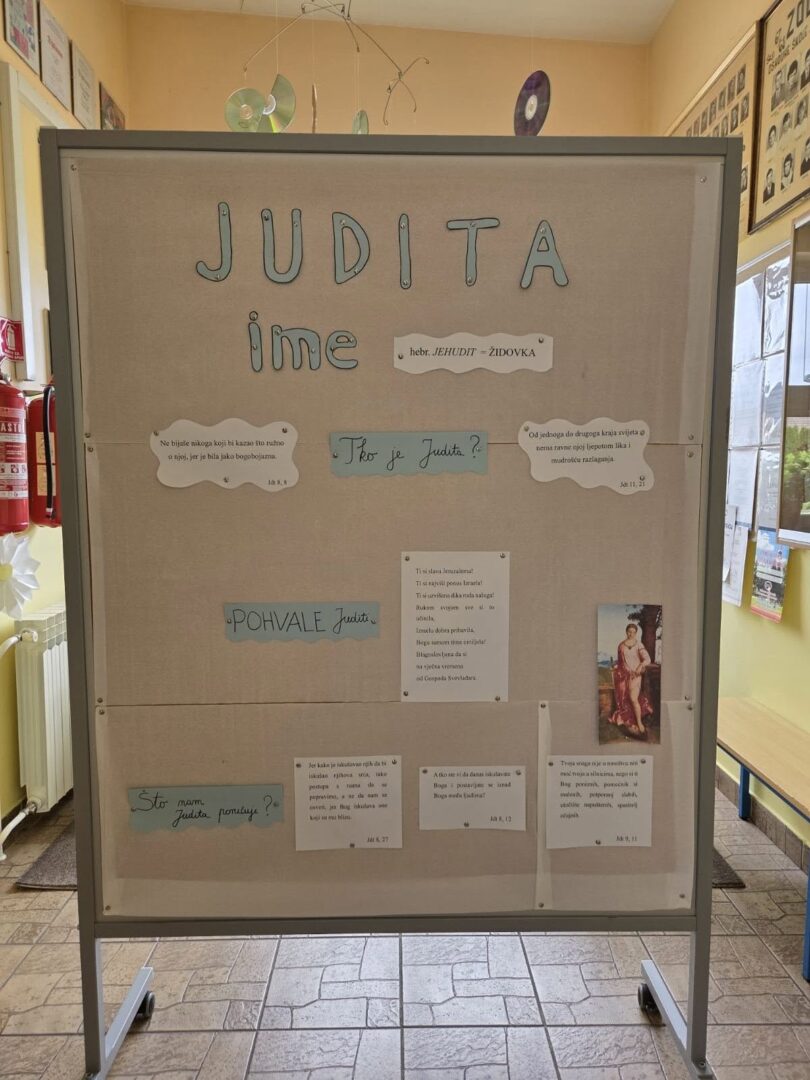 JUDITA
ime
hebr. JEHUDIT = ŽIDOVKA
Ne bijaše nikoga koji bi kazao što ružno
o njoj, jer je bila jako bogobojazna.
Jdt 8, 8
Tko je Judita?
Od jednoga do drugoga kraja svijeta
nema ravne njoj ljepotom lika i
mudrošću razlaganja.
Jdt 11, 21
POHVALE Juditi
Ti si slava Jeruzalema!
Ti si najviši ponos Izraela!
Ti si uzvišena dika roda našega!
Rukom svojom sve si to
učinila,
Izraelu dobra pribavila,
Bogu samom time omiljela!
Blagoslovljena da si
na vječna vremena
od Gospoda Svevladara
Što nam
Judita poručuje?
Jer kako je iskušavao njih da bi
iskušao njihova srca, tako
postupa s nama da se
popravimo, a ne da nam se
osveti, jer Bog iskušava one
koji su mu blizu.
Jdt 8, 27
A tko ste vi da danas iskušavate
Boga i postavljate se iznad
Boga među ljudima?
Jdt 8, 12
Tvoja snaga nije u mnoštvu niti
moć tvoja u silnicima, nego si ti
Bog poniznih, pomoćnik si
malenih, potporanj slabih,
utočište napuštenih, spasitelj
očajnih
Jdt 9, 11